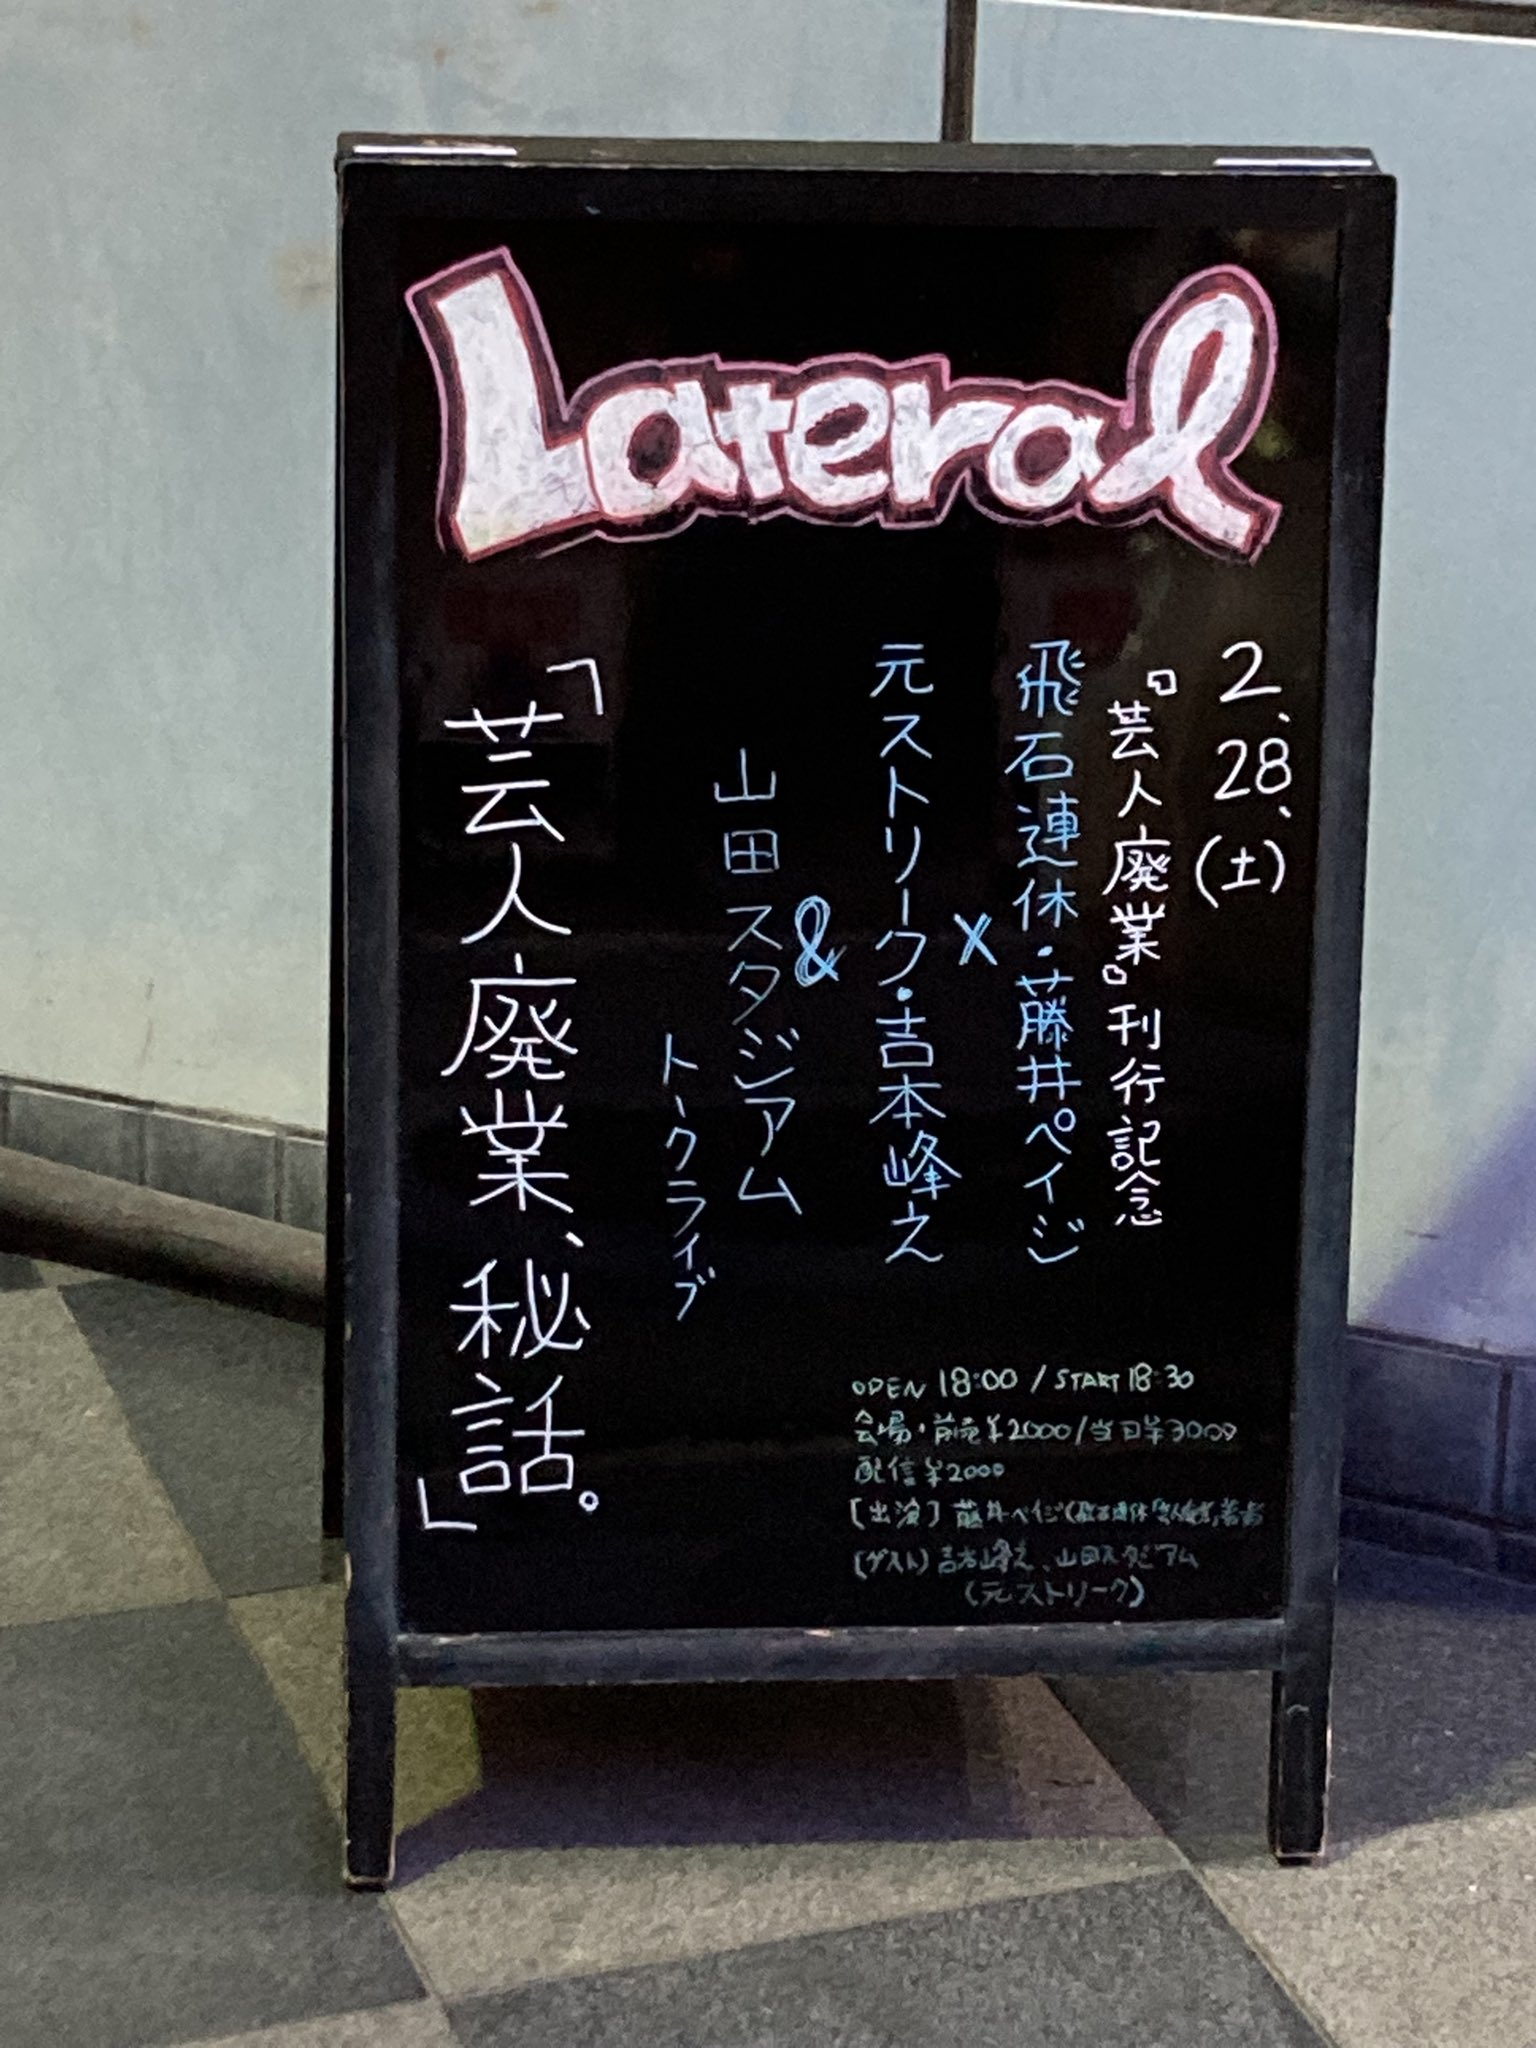 Lateral
2.28.(土)
『芸人廃業』刊行記念
飛石連休・藤井ペイジ
×
元ストリーク・吉本峰え
&
山田スタジアム
トークライブ
「芸人廃業、秘話。」
OPEN 18:00 / START 18:30
会場・前売¥2000/当日¥3000
配信¥2000
[出演] 藤井ペイジ(飛石連休「芸人廃業」著者
[ゲスト) 吉本峰え、山田スタジアム
(元ストリーク)